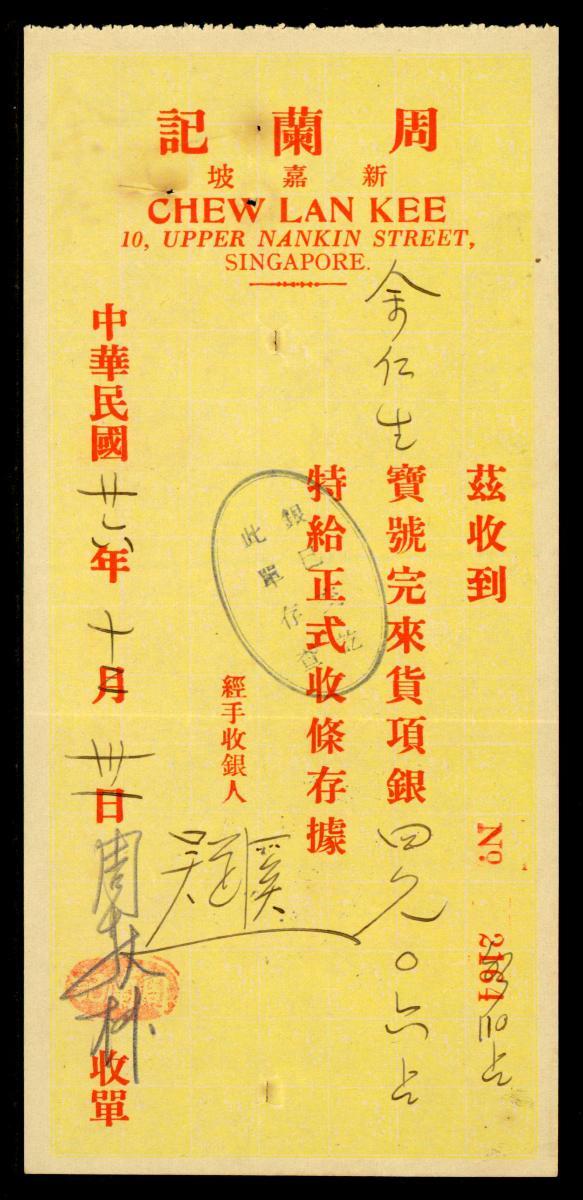 周蘭記
新嘉坡
CHEW LAN KEE
10, UPPER NANKIN STREET,
SINGAPORE.
茲收到
No. 2164
余仁生寶號完來貨項銀四元〇六占
特給正式收條存據
銀已
此單存查
經手收銀人
中華民國廿六年十月卅日
周 林
收單